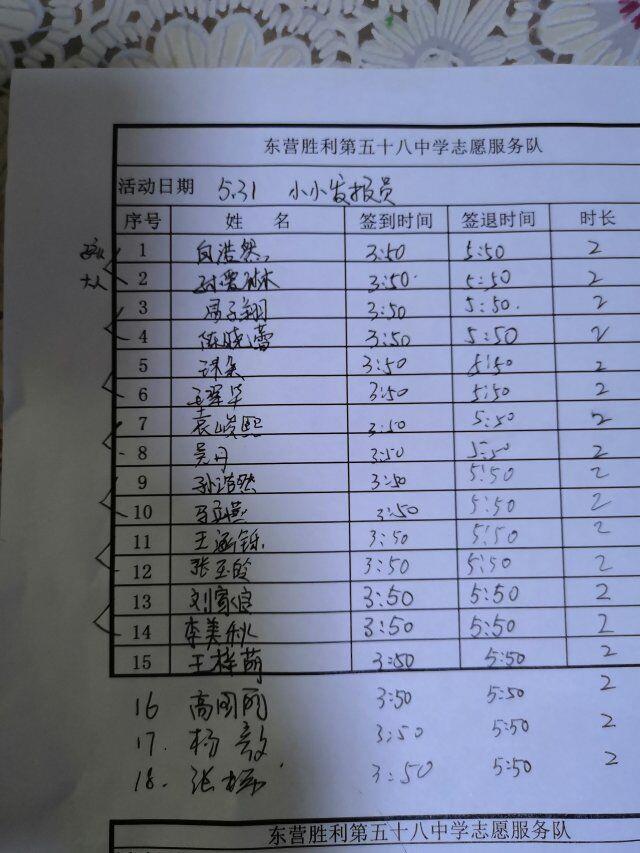 东营胜利第五十八中学志愿服务队
活动日期 5.31 小小发报员
序号 姓 名 签到时间 签退时间 时长
1 白浩然 3:50 5:50 2
大人 2 3:50 5:50 2
3 周子翔 3:50 5:50 2
4 陈晓蕾 3:50 5:50 2
5 3:50 5:50 2
6 王翠华 3:50 5:50 2
7 袁峻熙 3:50 5:50 2
8 吴丹 3:50 5:50 2
9 孙浩然 3:50 5:50 2
10 3:50 5:50 2
11 王涵铄 3:50 5:50 2
12 张玉玲 3:50 5:50 2
13 刘家良 3:50 5:50 2
14 李美秋 3:50 5:50 2
15 王梓萌 3:50 5:50 2
16 高国丽 3:50 5:50 2
17. 杨毅 3:50 5:50 2
18. 张 3:50 5:50 2
东营胜利第五十八中学志愿服务队